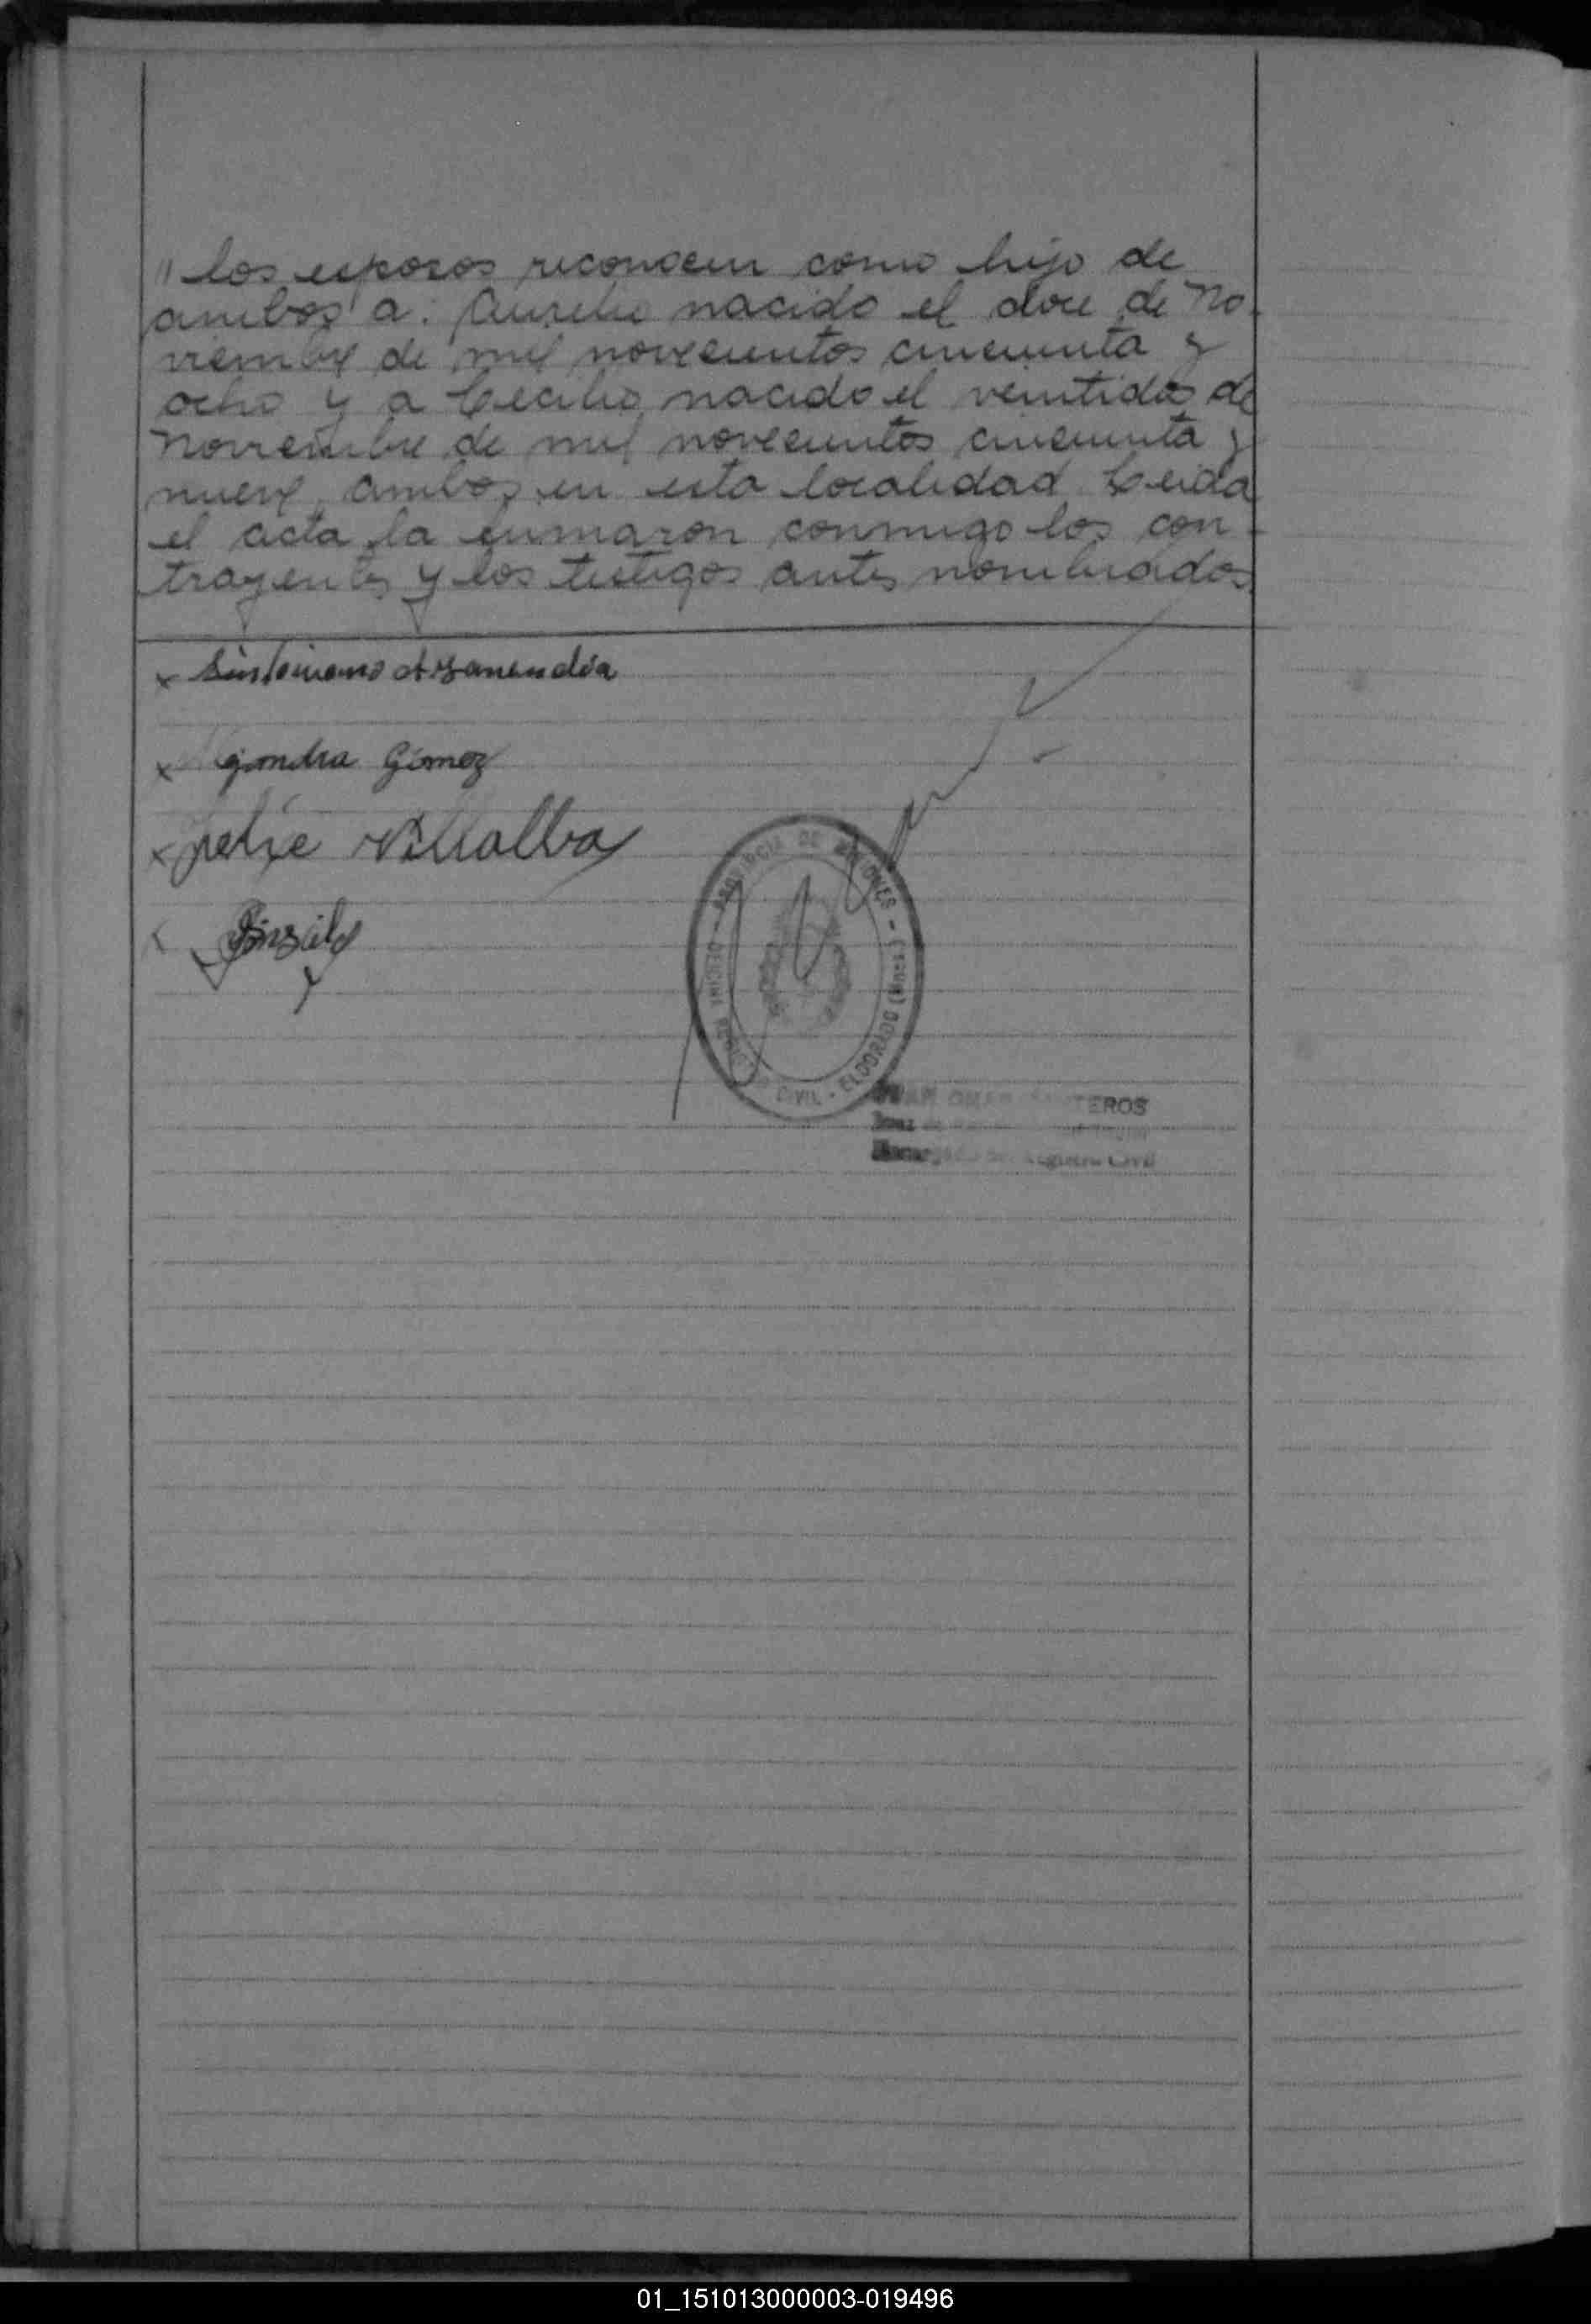 "los esposos reconocen como hijo de
ambos a: Aurelio nacido el doce de No
viembre de mil novecientos cincuenta y
ocho y a Cecilio nacido el veintidos de
Noviembre de mil novecientos cincuenta y
nueve, ambos en esta localidad Leida
el acta la firmaron conmigo los con-
trayentes y los testigos antes nombrados.
x
x Gómez
x Felix Villalba
x
PROVINCIA DE MISIONES - ELDORADO (Mnes.)
OFICINA REGISTRO CIVIL
OMAR TEROS
Registro Civil
01_151013000003-019496